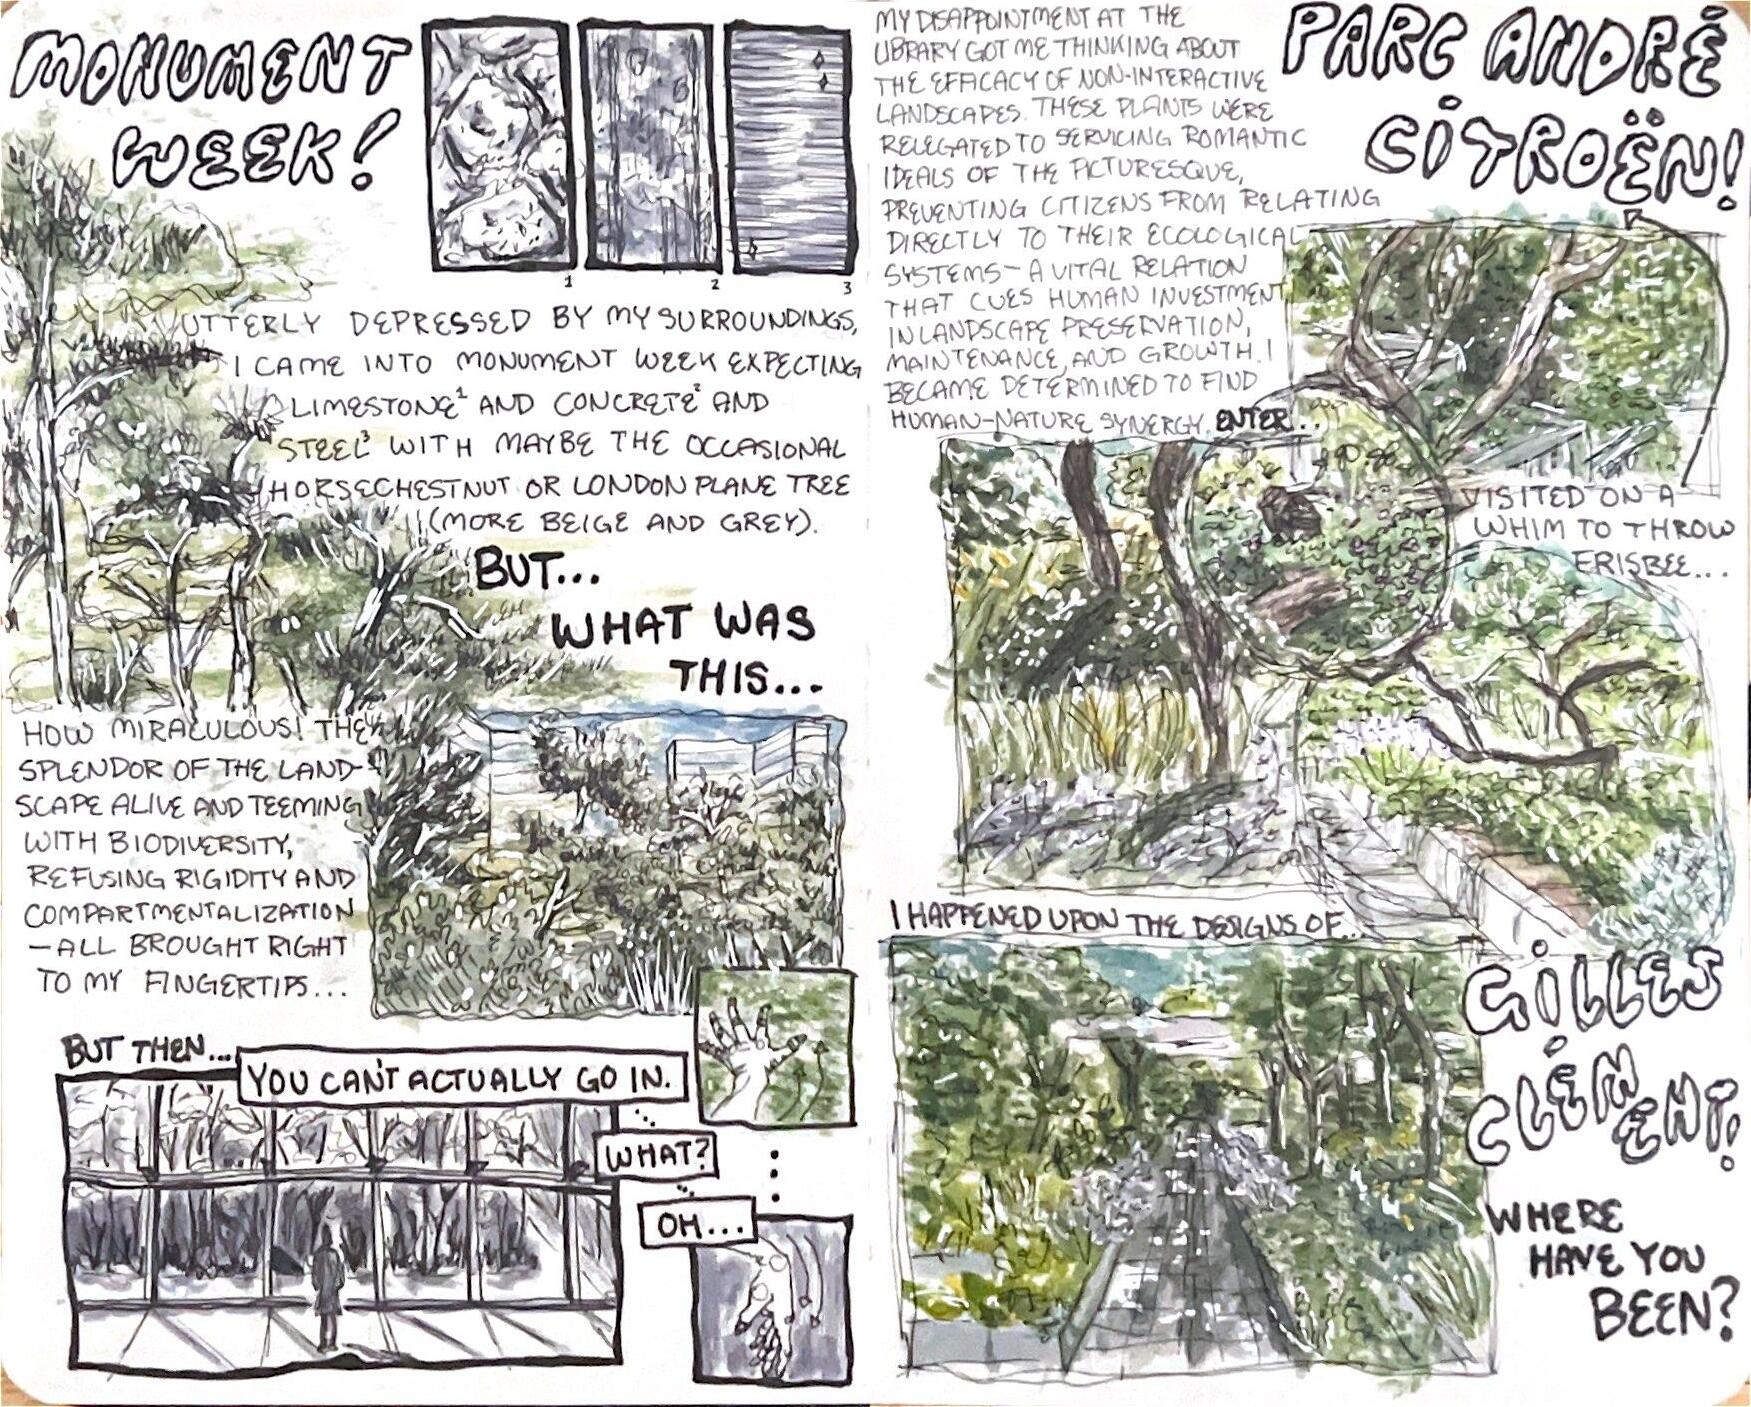 MONUMENT
WEEK!
1
2
3
UTTERLY DEPRESSED BY MY SURROUNDINGS,
I CAME INTO MONUMENT WEEK EXPECTING
LIMESTONE¹ AND CONCRETE² AND
STEEL³ WITH MAYBE THE OCCASIONAL
HORSECHESTNUT OR LONDON PLANE TREE
(MORE BEIGE AND GREY).
BUT...
WHAT WAS
THIS...
HOW MIRACULOUS! THE
SPLENDOR OF THE LAND-
SCAPE ALIVE AND TEEMING
WITH BIODIVERSITY,
REFUSING RIGIDITY AND
COMPARTMENTALIZATION
—ALL BROUGHT RIGHT
TO MY FINGERTIPS...
BUT THEN...
YOU CAN'T ACTUALLY GO IN.
WHAT?
OH...
MY DISAPPOINTMENT AT THE
LIBRARY GOT ME THINKING ABOUT
THE EFFICACY OF NON-INTERACTIVE
LANDSCAPES. THESE PLANTS WERE
RELEGATED TO SERVICING ROMANTIC
IDEALS OF THE PICTURESQUE,
PREVENTING CITIZENS FROM RELATING
DIRECTLY TO THEIR ECOLOGICAL
SYSTEMS—A VITAL RELATION
THAT CUES HUMAN INVESTMENT
IN LANDSCAPE PRESERVATION,
MAINTENANCE, AND GROWTH. I
BECAME DETERMINED TO FIND
HUMAN-NATURE SYNERGY. ENTER...
PARC ANDRÉ
CITROËN!
VISITED ON A
WHIM TO THROW
FRISBEE...
I HAPPENED UPON THE DESIGNS OF...
GILLES
CLÉMENT!
WHERE
HAVE YOU
BEEN?